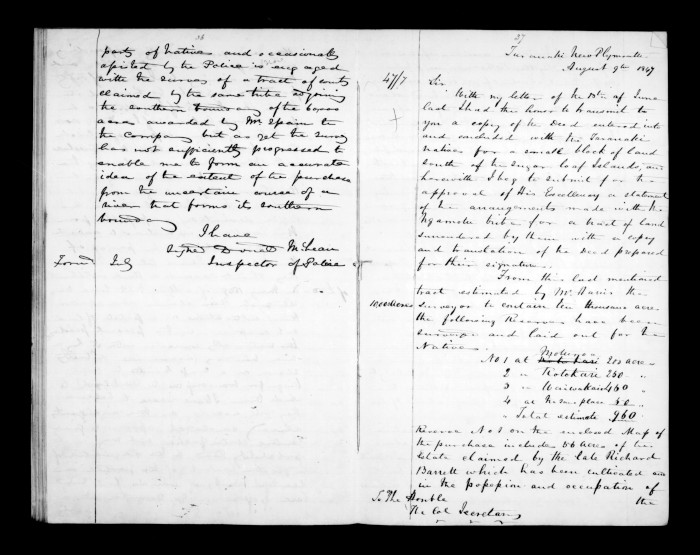 36
party of Natives and occasionally
assisted by the Police is engaged
with the survey of a tract of country
claimed by the same tribe adjoining
the southern boundary of the 60,000
acres awarded by Mr Spain to
the Company but as yet the survey
has not sufficiently progressed to
enable me to form an accurate
idea of the extent of the purchase
from the uncertain course of a
river that forms its southern
boundary
I have
Signed Donald McLean
Inspector of Police
37
Taranaki New Plymouth
August 9th 1847
47/7
Sir
With my letter of the of June
last I had the honor to transmit to
you a copy of the Deed entered into
and concluded with the Taranaki
natives for a small block of land
south of the Sugar loaf Islands, and
herewith I beg to submit for the
approval of His Excellency a statement
of the arrangements made with the
Ngamotu tribe for a tract of land
surrendered by them with a copy
and translation of the Deed prepared
for their signature.
From this last mentioned
10,000 acres
tract estimated by Mr the
surveyor to contain ten thousand acres
the following Reserves have been
surveyed and laid out for the
Natives.
No 1 at 200 acres
2 " Kotokari 250 "
3 " 460 "
4 at place 50 "
" Total estimate 960
Reserve No 1 on the enclosed Map of
the purchase includes 56 acres of the
Estate claimed by the late Richard
Barrett which has been cultivated and
in the possession and occupation of
To The Honble the
The Col Secretary